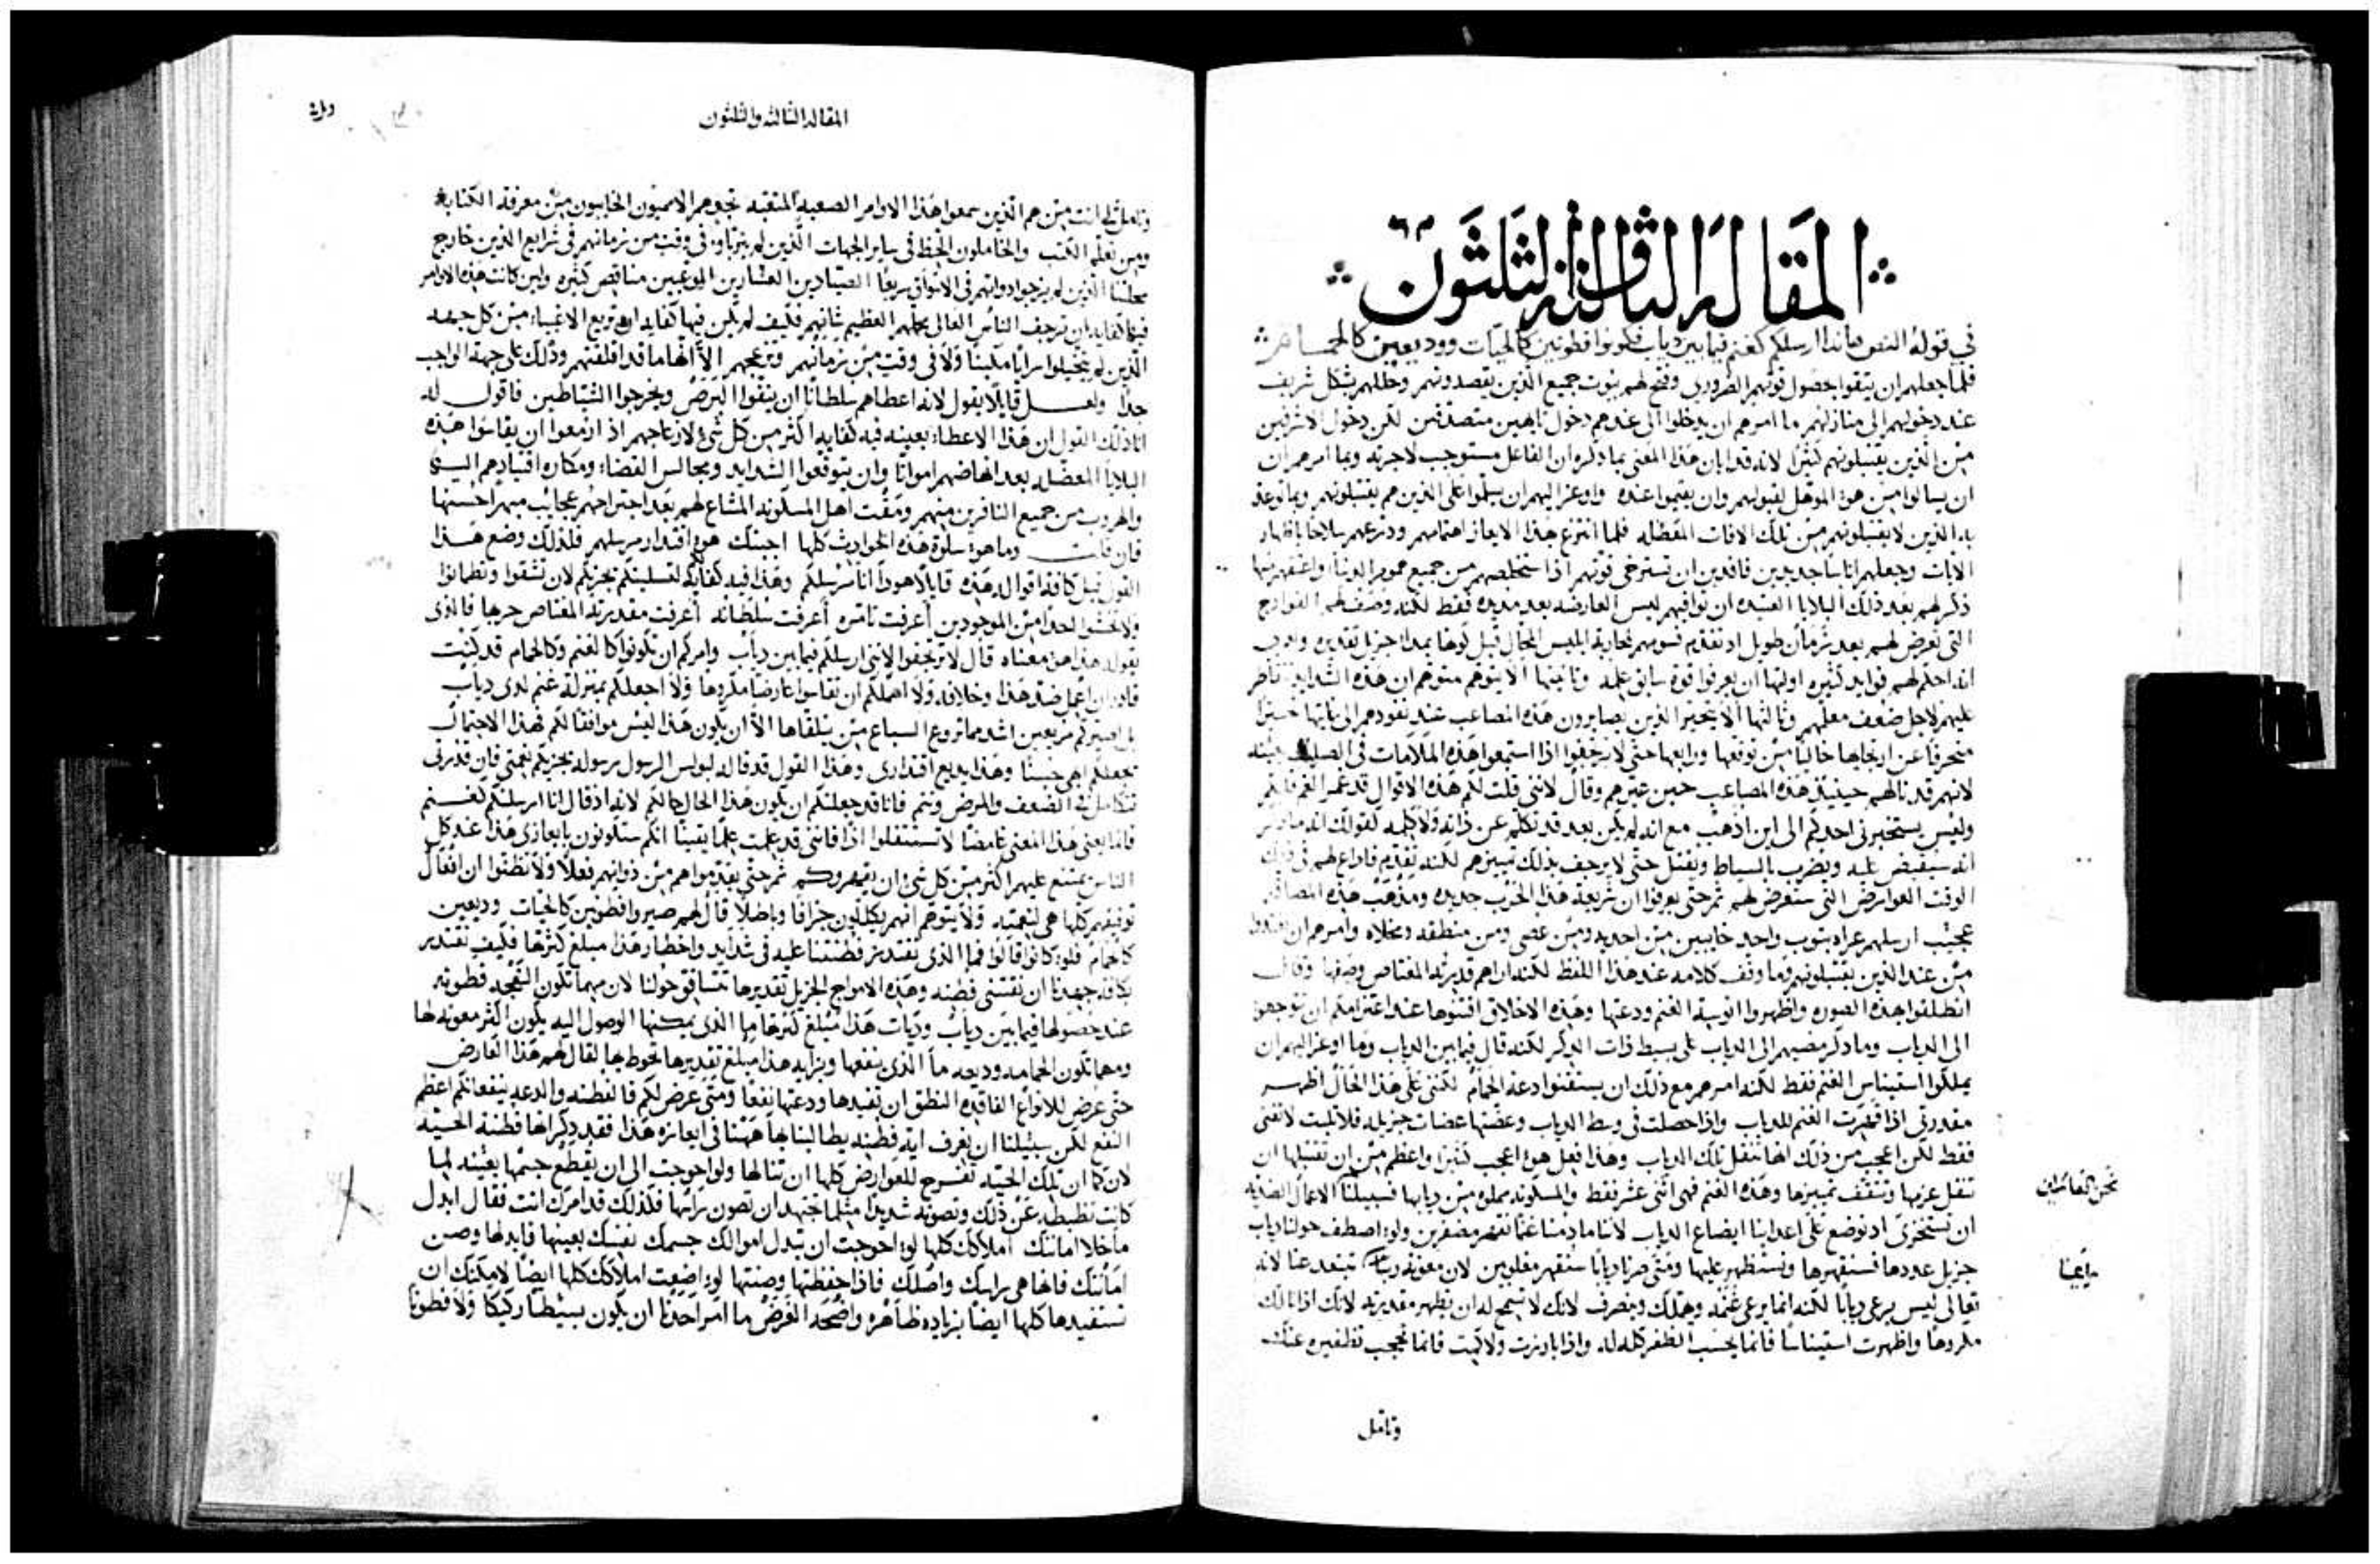 المقالة الثالثة والثلثون
في قوله النص هانذا ارسلكم كغنم فيما بين دياب فكونوا فطونين كالحيات ووديعين كالحمام
فلما جعلهم ان يثقوا حصول قوتهم الضروري وفتح لهم بيوت جميع الذين يقصدونهم وجللهم بشكل شريف
عند دخولهم الى منازلهم ما امرهم ان يدخلوا الى عندهم دخول تايهين متصدقين لكن دخول الاشرفين
من الذين يقتبلونهم كثيرا لانه قد ابان هذا المعنى بما ذكره ان الفاعل مستوجب لاجرته وبما امرهم ان
ان يسالوا من هو الموهل لقبولهم وان يقيموا عنده واوعز اليهم ان يسلموا على الذين هم يقتبلونهم وبما توعد
به الذين لا يقتبلونهم من تلك الافات المعضله فلما انتزع بهذا الايعاز اهتمامهم ودرعهم سلاحا باظهار
الايات وجعلهم اناسا حديدين فاقدين ان تسترخى قوتهم اذا استخلصهم من جميع هموم الدنيا واعتقهم منها
ذكر لهم بعد ذلك البلايا العتيده ان توافيهم ليس العارضه بعد مديده فقط لكنه وصف لهم الفوادح
التي تعرض لهم بعد زمان طويل اذ تقدم فسومهم لمحاربة ابليس المحال قبل كونها بمدا جزيل تقديره
انه احكم لهم فوايد كثيره اولتها ان يعرفوا قوة سابق علمه وثانيتها الا يتوهم متوهم ان هذه الشدايد تتاطر
عليهم لاجل ضعف معلمهم وثالثتها الا يتحير الذين يصابرون هذه المصاعب عند نفوذهم الى غايتها
منحرفا عن ايجابها خاليا من توقعها ورابعها حتى لا يرجفوا اذا استمعوا هذه الملامات في الصليب عينه
لانهم قد نالهم حينيذ هذه المصاعب حين عيرهم وقال لانني قلت لكم هذه الاقوال قد غمر الغم قلوبكم
وليس يستخبرني احدكم الى اين اذهب مع انه لم يكن بعد قد تكلم عن ذاته ولا كلمه
انه سيقبض عليه ويضرب بالسياط ويقتل حتى لا يرجف بذلك تمييزهم لكنه تقدم فاذاع لهم في ذلك
الوقت العوارض التي ستعرض لهم ثم حتى يعرفوا ان شريعة هذا الحرب جديده ومذهب هذه المصاف
عجيب ارسلهم عراه بثوب واحد خايبين من احذيه ومن عصي ومن منطقه ومخلاه وامرهم ان يغتذوا
من عند الذين يقتبلونهم وما وقف كلامه عند هذا اللفظ لكنه اراهم قدرته المعتاص وصفها وقال
انطلقوا بهذه الصوره واظهروا انوسية الغنم ودعتها وهذه الاخلاق اقتنوها عند اعتزامكم ان تتوجهوا
الى الدياب وما ذكر مضيهم الى الدياب على بسيط ذات الذكر لكنه قال فيما بين الدياب وما اوعز اليهم ان
يملكوا استيناس الغنم فقط لكنه امرهم مع ذلك ان يستقنوا دعة الحمام لكنني على هذا الحال اظهر
مقدرتي اذا قهرت الغنم للدياب واذا حصلت في وسط الدياب وعضتها عضات جزيله فلا تلبث لا تفنى
فقط لكن اعجب من ذلك انها تنقل تلك الدياب وهذا فعل هو اعجب كثيرا واعظم من ان تقتلها ان
تنقل عزمها وتثقف تمييزها وهذه الغنم فهي اثني عشر فقط والمسكونه مملوه من ديابها فسبيلنا
ان نستخزي اذ نوضع على اعداينا ايضاع الدياب لاننا ما دمنا غنما نقهر مضفرين ولو اصطف حولنا دياب
جزيل عددها فسنقهرها ونستظهر عليها ومتى صرنا ديابا سنقهر مغلوبين لان معونة ربنا تبتعد عنا لانه
تعالى ليس يرعى ديابا لكنه انما يرعى غنمه ويهملك وينصرف لانك لا تسمح له ان يظهر مقدرته لانك اذا نالك
مكروها واظهرت استيناسا فانما يحسب الظفر كله له واذا بادرت ولاكمت فانما تحجب تظفيره عنك
نحن القائمين
دايمًا
وتامل
المقالة الثالثه والثلثون
وتامل لي انت من هم الذين سمعوا هذا الاوامر الصعبه المتعبه تجدهم الاميون الخايبون من معرفة الكتابه
ومن تعلم الكتب والخاملون الحظ في ساير الجهات الذين لم يتربوا في وقت من زمانهم في شرايع الذين خارج
محلتنا الذين لم يزجوا دواتهم في الاسواق سريعا الصيادين العشارين الموعبين مناقص كثيره ولين كانت هذه الاوامر
فيها كفايه ان ترجف الناس العالي محلهم العظيم شانهم فكيف لم يكن فيها كفايه ان تريع الاغبياء من كل جهه
الذين لم يتخيلوا رايا مكينا ولا في وقت من زمانهم وتزعجهم الا انها ما قد اقلقتهم وذلك على جهة الواجب
جدا ولعل قايلا يقول لانه اعطاهم سلطانا ان ينقوا البرص ويخرجوا الشياطين فاقول له
انا ذلك القول ان هذا الاعطاء بعينه فيه كفايه اكثر من كل شيء لازعاجهم اذ ازمعوا ان يقاسوا هذه
البلايا المعضله بعد انهاضهم امواتا وان يتوقعوا الشدايد ومجالس القضاء ومكاره اقتيادهم اليها
والهروب من جميع النافرين منهم ومقت اهل المسكونه المشاع لهم بعد اجتراحهم عجايب مبهرا حسنها
فان قلت وما هو سلوة هذه الحوادث كلها اجبتك هو اقتدار مرسلهم فلذلك وضع هذا
القول قبل كافة اقواله هذه قايلا هوذا انا مرسلكم وهذا فيه كفايه لتسليتكم بجزيكم لان تثقوا وتطمانوا
ولا تخشوا احدا من الموجودين أعرفت تامره أعرفت سلطانه أعرفت مقدرته المعتاص حربها فالذي
يقوله هذا هو معناه قال لا ترجفوا لانني ارسلكم فيما بين دياب وامركم ان تكونوا كالغنم وكالحمام قد كنت
قادرا ان اعمل ضد هذا وخلافه ولا اهملكم ان تقاسوا عارضا مكروها ولا اجعلكم بمنزلة غنم لدى دياب
بل اصيركم مريعين اشد مما تروع السباع من يتلقاها الا ان يكون هذا ليس موافقا لكم لهذا الاحتمال
يجعلكم ابهى حسنا وهذا يذيع اقتداري وهذا القول قد قاله لبولس الرسول رسوله تجزيكم نعمتي فان قدرتي
تتكامل في الضعف والمرض وتتم فانا قد جعلتكم ان يكون هذا الحال حالكم لانه اذ قال انا ارسلتكم كغنم
فانما يعني هذا المعنى غامضا لا تستثقلوا اذا فانني قد علمت علما يقينا انكم ستكونون بايعازي هذا عند كل
الناس ممتنع عليهم اكثر من كل شيء وان يقهروكم ثم حتى يقدموا هم من ذواتهم فعلا ولا يظنوا ان افعال
توفيقهم كلها هي لنعمته ولا يتوهم انهم يكللون جزافا وباطلا قال لهم صيروا فطونين كالحيات وديعين
كالحمام فلو كانوا قالوا فما الذي تقتدر فطنتنا عليه في شدايد واخطار هذا مبلغ كثرتها فكيف نقتدر
بكافة جهدنا ان نقتني فطنه وهذه الامواج الجزيل تقديرها تتساقق حولنا لان مهما تكون النعجه فطونه
عند حصولها فيما بين دياب ودياب هذا مبلغ كثرتها ما الذي يمكنها الوصول اليه يكون اكثر معونه لها
ومهما تكون الحمامه وديعه ما الذي ينفعها وبزايه هذا مبلغ تقديرها تحوط بها لقال لهم هذا العارض
حتى عرض للانواع الفاقده النطق ان تفيدها ودعتها نفعا ومتى عرض لكم فالفطنه والدعه ينفعانكم اعظم
النفع لكن سبيلنا ان نعرف اية فطنه يطالبنا بها ههنا في ايعازه هذا فقد ذكر انها فطنة الحيه
لان كما ان تلك الحيه تفسح للعوارض كلها ان تنالها ولو احوجت الى ان يقطع جسمها بعينه لما
كانت تظبطه عن ذلك وتصونه شديدا مثلما تجتهد ان تصون راسها فلذلك قد امرك انت فقال ابدل
ما خلا امانتك املاكك كلها لو احوجت ان تبدل اموالك جسمك نفسك بعينها فابدلها وصن
امانتك فانها هي راسك واصلك فاذا حفظتها وصنتها لو اضعت املاكك كلها ايضا لامكنك ان
تستفيدها كلها ايضا بزياده ظاهره واضحه الغرض ما امر احدنا ان يكون بسيطا ركيكا ولا فطونا